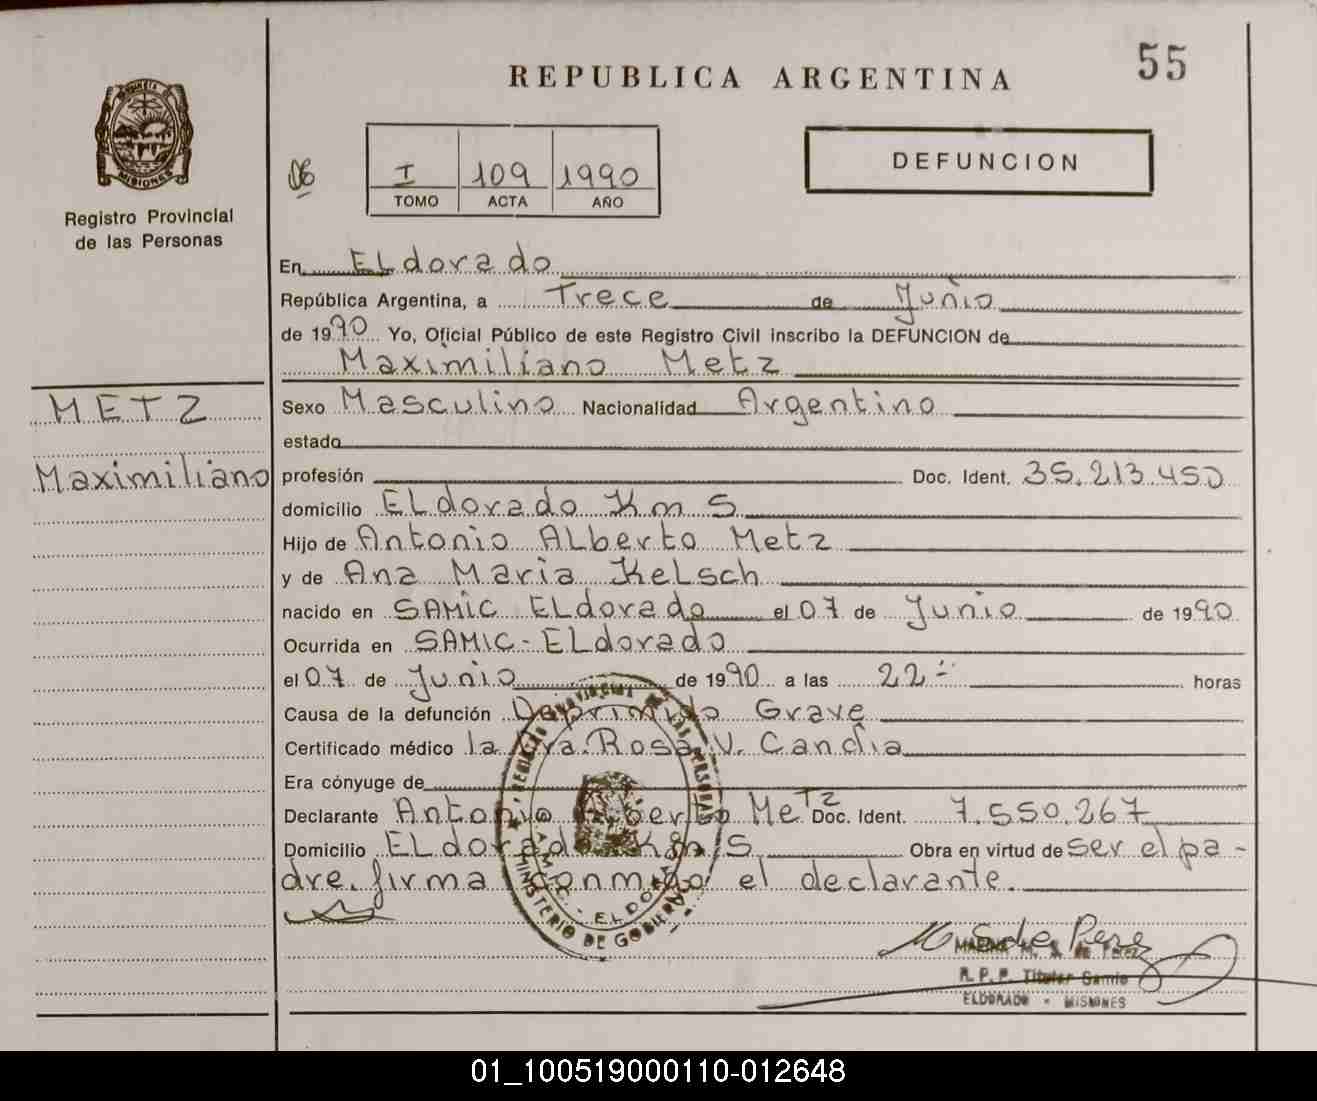 55
REPUBLICA ARGENTINA
MISIONES
Registro Provincial
de las Personas
DEFUNCION
I 109 1990
TOMO ACTA AÑO
En ELdorado
República Argentina, a Trece de Junio
de 1990 Yo, Oficial Público de este Registro Civil inscribo la DEFUNCION de
Maximiliano Metz
METZ
Maximiliano
Sexo Masculino Nacionalidad Argentino
estado
profesión Doc. Ident. 35.213.450
domicilio ELdorado Km 5
Hijo de Antonio ALberto Metz
y de Ana Maria KeLsch
nacido en SAMIC ELdorado el 07 de Junio de 1990
Ocurrida en SAMIC-ELdorado
el 07 de Junio de 1990 a las 22 horas
Causa de la defunción Deprimido Grave
Certificado médico la Dra. Rosa V. Candia
Era cónyuge de
Declarante Antonio Alberto MeTZ Doc. Ident. 7.550.267
Domicilio ELdorado Km 5 Obra en virtud de ser el pa-
dre. firma conmigo el declarante.
REGISTRO PROVINCIAL DE LAS PERSONAS
S.A.M.I.C. - ELDORADO
MINISTERIO DE GOBIERNO
M S de Perez
R.P.P. Titular Samic
ELDORADO - MISIONES
01_100519000110-012648